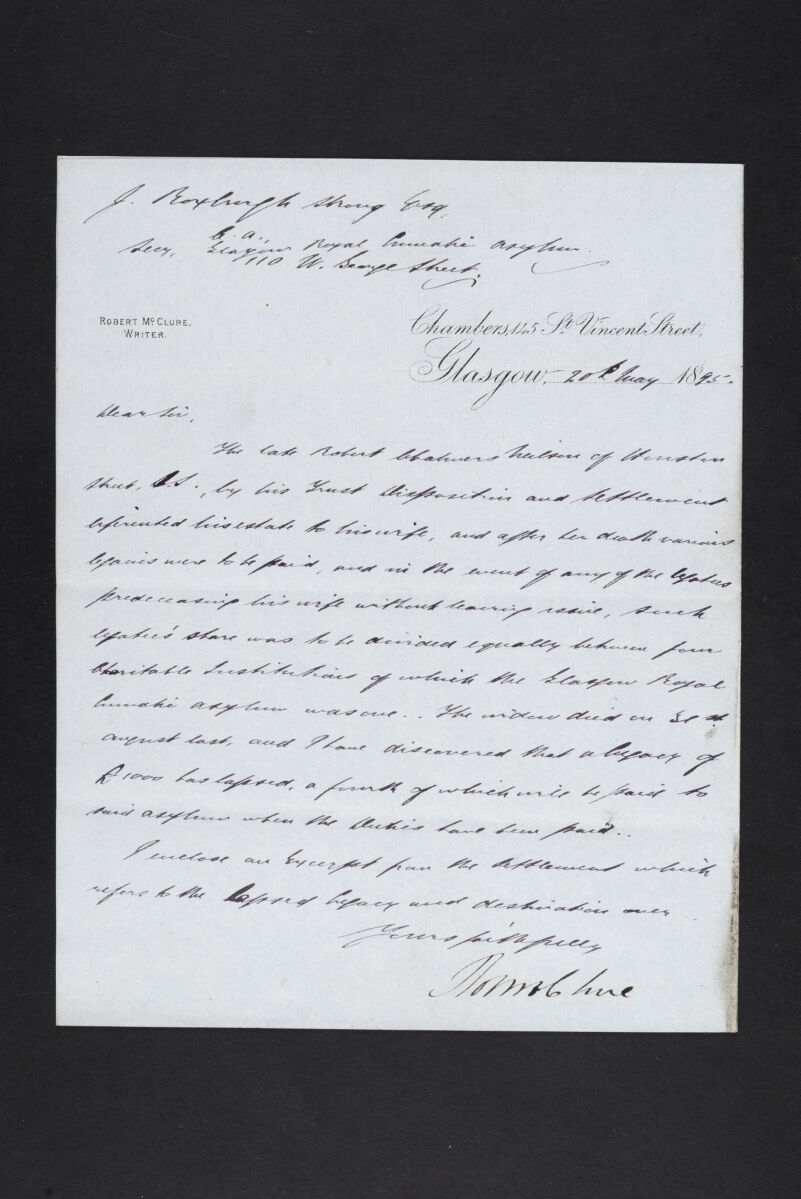 J. Roxburgh Strang Esq,
C. A.,
Secy, Glasgow Royal Lunatic Asylum.
110 W. George Street.
ROBERT McCLURE.
WRITER.
Chambers, 145 St. Vincent Street,
Glasgow, 20th May 1895.
Dear Sir,
The late Robert Chalmers Neilson of Houston
Street, S.S., by his Trust Disposition and Settlement
liferented his estate to his wife, and after her death various
legacies were to be paid, and in the event of any of the legatees
predeceasing his wife without leaving issue, such
legatee's share was to be divided equally between four
Charitable Institutions of which the Glasgow Royal
Lunatic Asylum was one.. The widow died on 31st
August last, and I have discovered that a legacy of
£1000 has lapsed, a fourth of which will be paid to
said asylum when the Duties have been paid..
I enclose an Excerpt from the Settlement which
refers to the lapsed legacy and destination over
Yours faithfully
Robt McClure